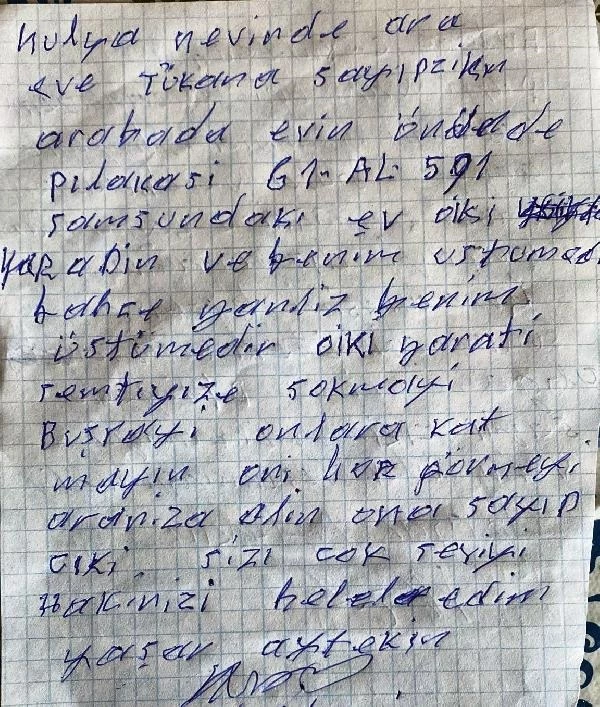 hulya nevinde ara
eve Tükana sayıpzikın
arabada evin önünde
pılakasi 61-AL 591
samsundakı ev oiki
yaradin ve benim ustumed
bahçe yanlız benim
üstümedir oiki yarati
semtiyize sokmayi
Buşrayi onlara kat
mayin oni hor görmeyi
araniza alin ona sayıp
ciki sizi cok seviyi
Hakinizi helel edim
yaşar aytekin